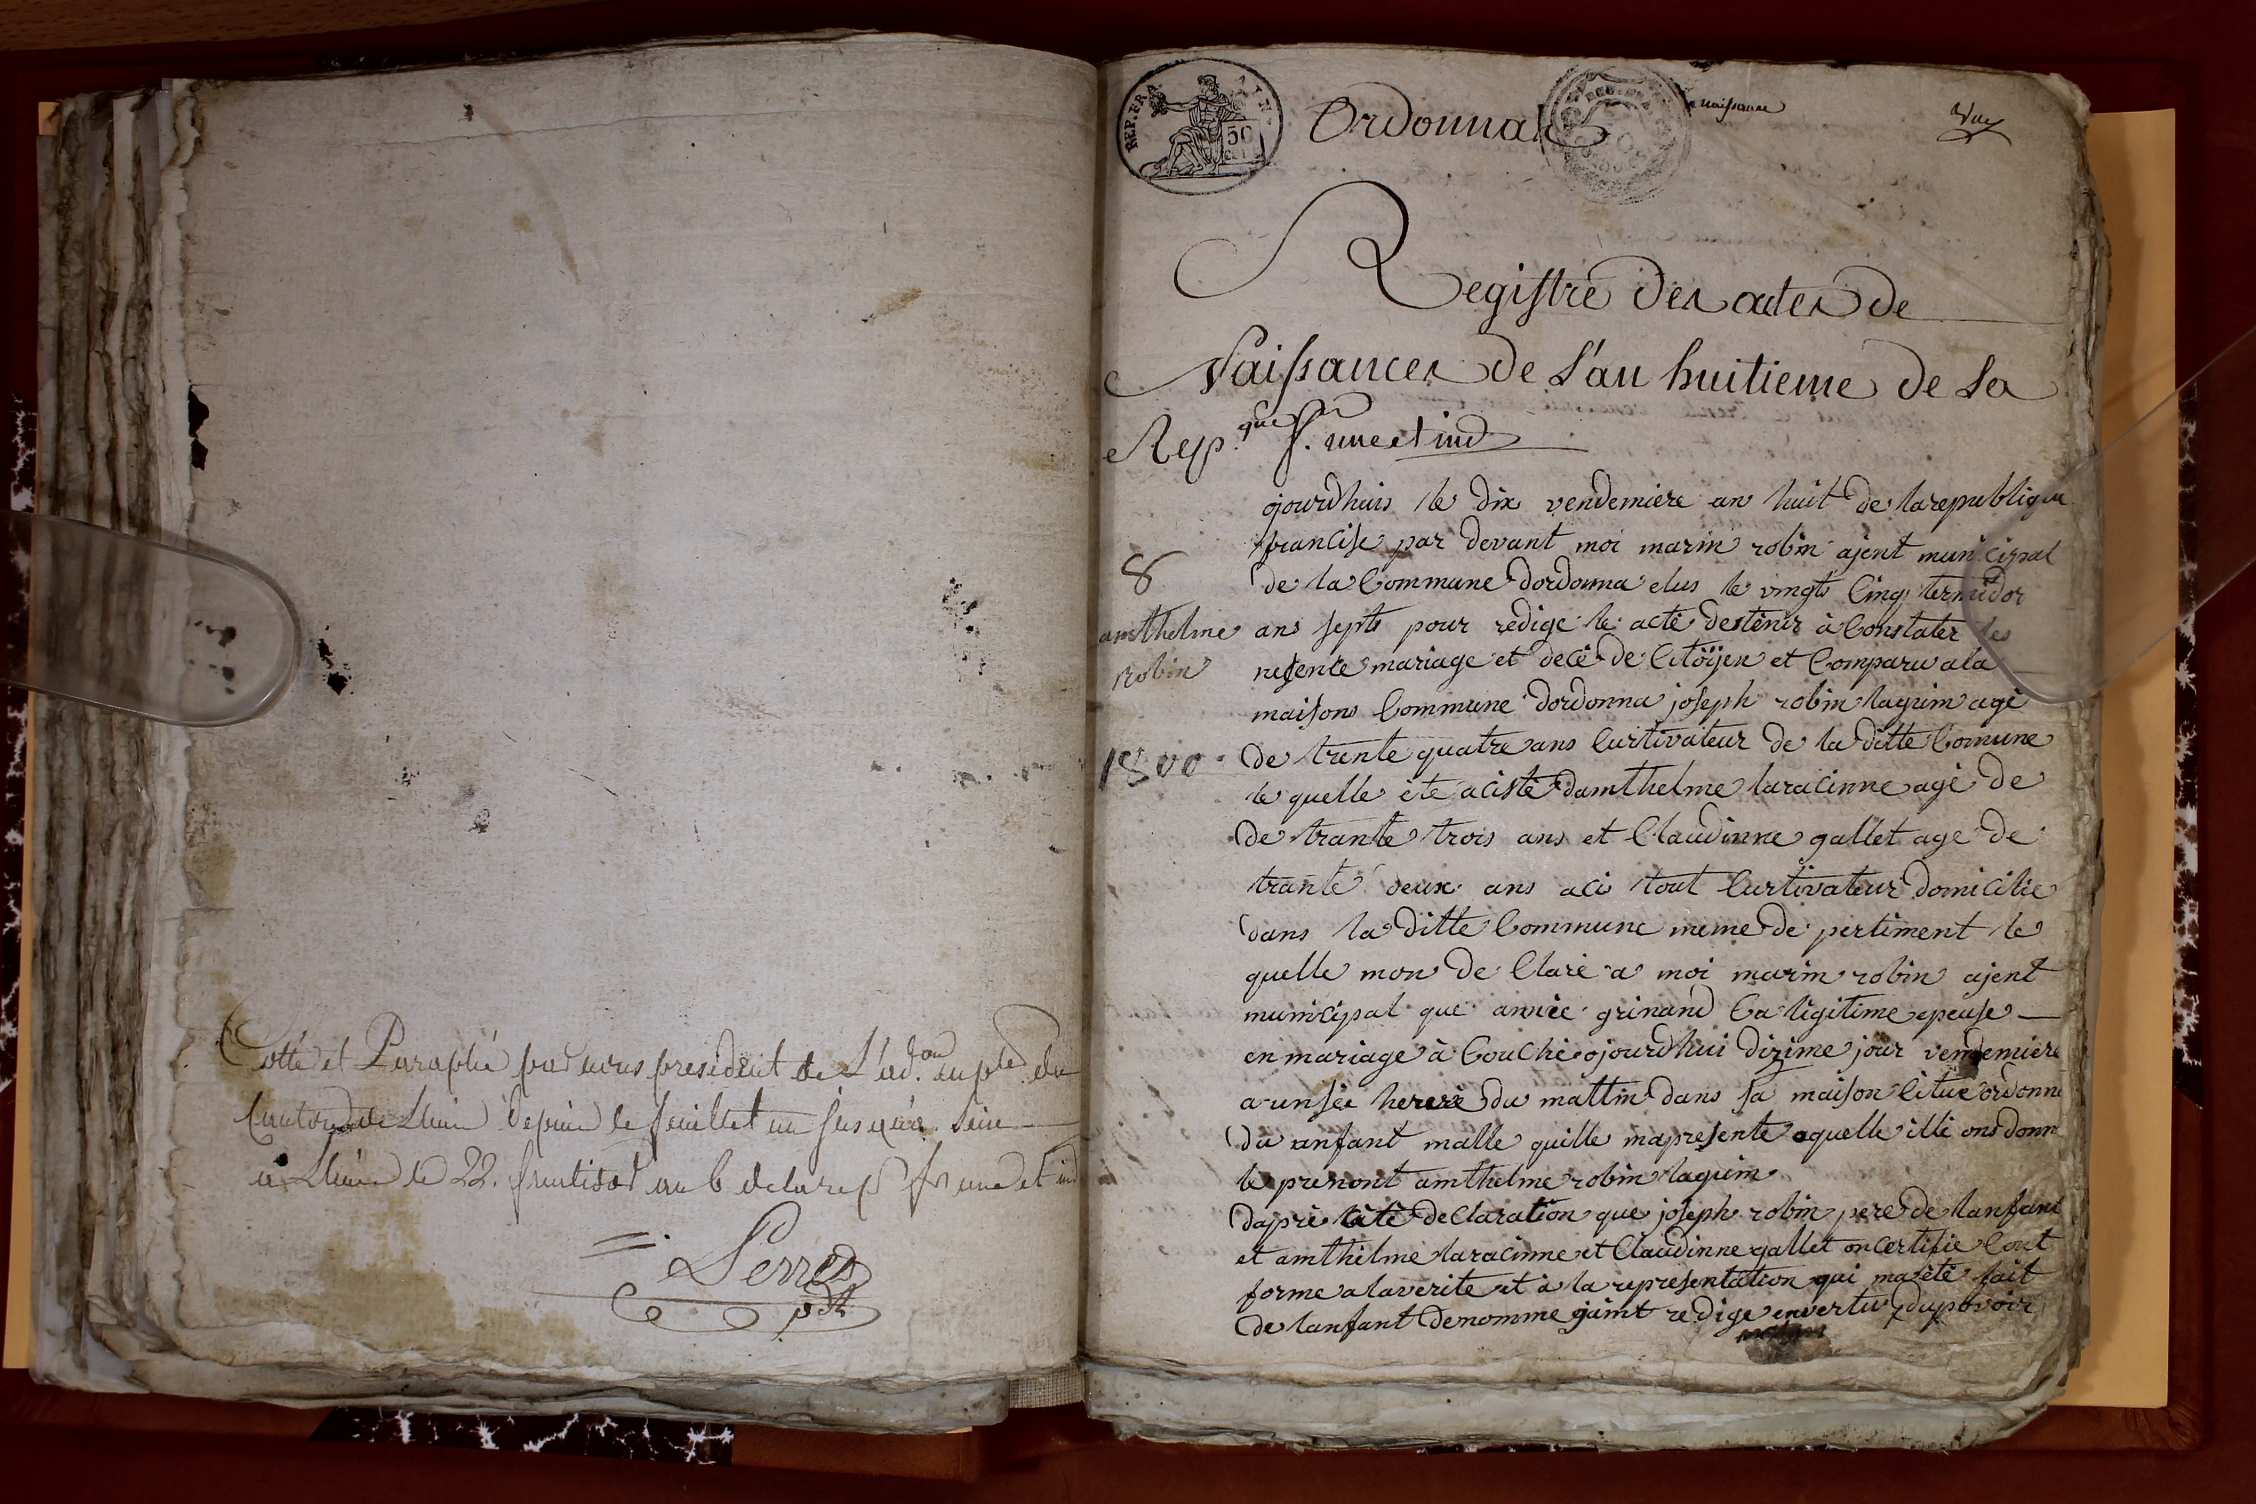 Cotté et Paraphé par nous president de L'ad.on mple du
Canton de Lhuis depuis le feuillet un jusqu'a seize
a Lhuis le 22. fructidor an 6 de la rep fr une et ind
Serres
pdt
REP. FRA.
50
Ordonnas
naissance
Registre des actes de
Naissances de L'an huitieme de La
Rep.que f. une et ind
ojourdhuis le dix vendemiere an huit de la republique
francise par devant moi marin robin ajent municipal
8
de la Commune dordonna elus le vingts Cinq termidor
amthelme
ans septs pour redige le acte destenir à Constater les
robin
nesente mariage et decé de Citöÿen et Comparu a la
maisons Commune dordonna joseph robin laguin agé
1800
de trente quatre ans Curtivateur de la ditte Comune
le quelle ete aciste damthelme laracinne agé de
de trante trois ans et Claudinne gallet age de
trante deux ans aci tout Curtivateur domicilie
dans la ditte Commune meme de pertiment le
quelle mon de Claré a moi marin robin ajent
municipal que année grinand Ca ligitime epeuse
en mariage à Couche ojourdhui dizime jour vendemiere
a unsée herere du mattin dans sa maison Citue ordonna
du anfant malle quille ma presente aquelle illi ons donne
le prenont amthelme robin laguin
dapre cete declaration que joseph robin pere de lanfant
et amthelme laracinne et Claudinne gallet on Certifie Cont
forme a laverite et à la representation qui ma été fait
de lanfant denomme jaimt redige en vertu du povoir